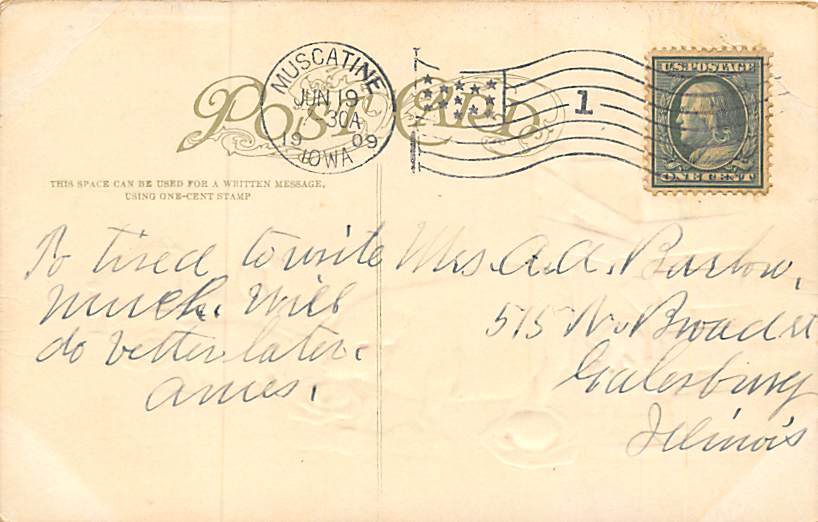 POST CARD
MUSCATINE
JUN 19
30A
1909
IOWA
1
U.S. POSTAGE
ONE CENT
THIS SPACE CAN BE USED FOR A WRITTEN MESSAGE,
USING ONE-CENT STAMP
To tired to write
much. Will
do better later.
Ames.
Mrs. A. A. Barlow,
515 N. Broad st
Galesburg
Illinois